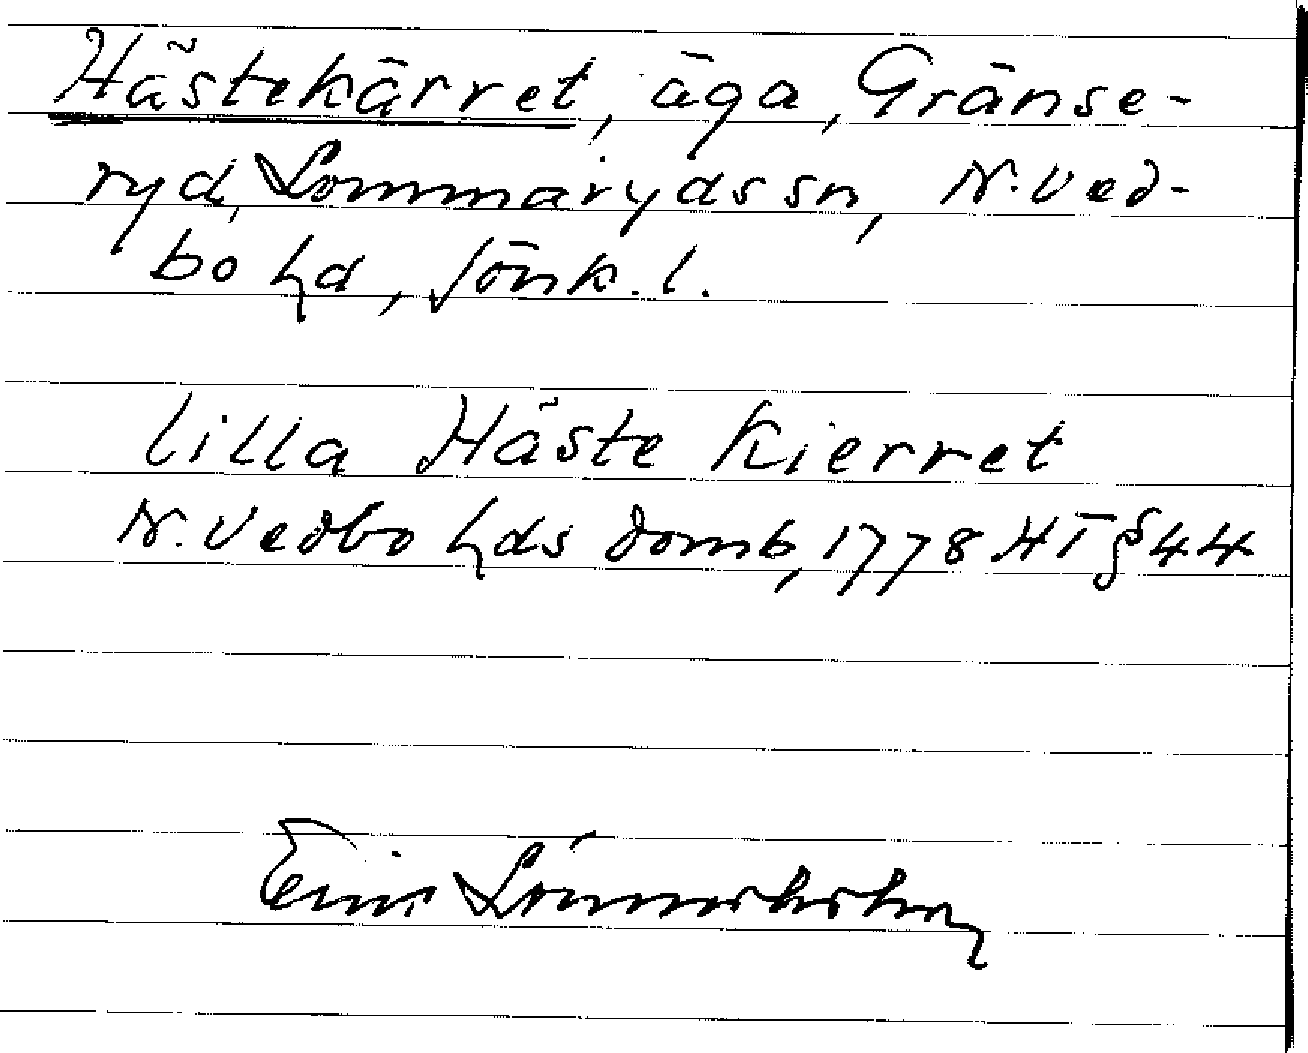 Hästekärret, äga, Gränse-
ryd, Lommaryds sn, N. Ved-
bo hd, Jönk. l.
lilla Häste Kierret
N. Vedbo hds domb, 1778 HT § 44
Einar Lönnerholm